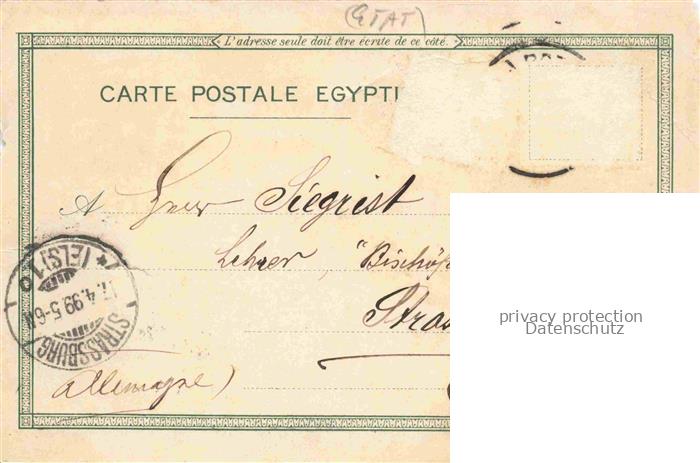 (ETAT)
L'adresse seule doit être écrite de ce côté.
CARTE POSTALE EGYPTI
A Herr Siegrist
Lehrer, "Bischöf
Stras
Allemagne)
STRASSBURG
17.4.99.5-6N
*(ELS)1 o
privacy protection
Datenschutz